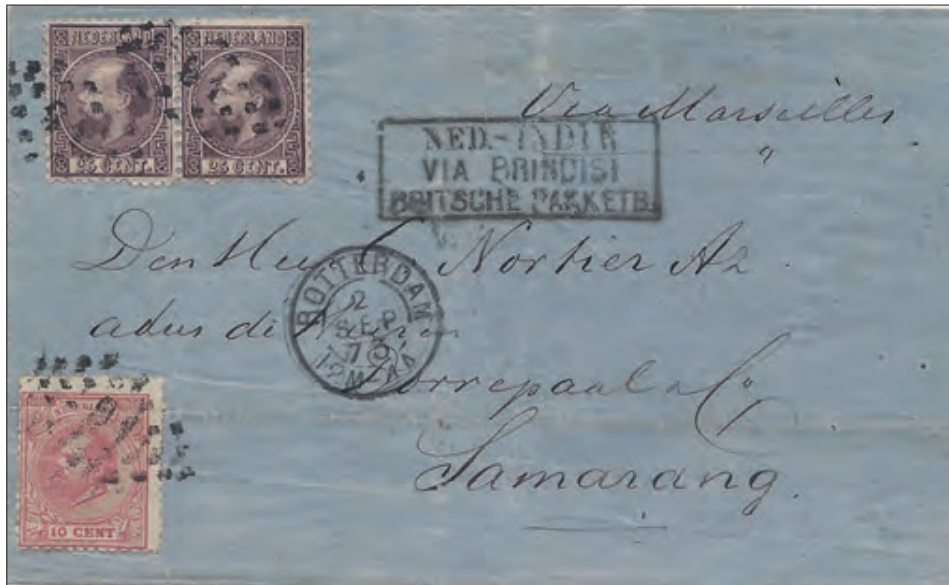 NEDERLAND NEDERLAND
25 CENT. 25 CENT.
Via Marseilles
"
NED.-INDIE
VIA BRINDISI
BRITSCHE PAKKETB.
Den Heer Nortier Az
adres de Heeren
Dorrepaal & Co
Samarang.
ROTTERDAM
2
SEP
10 CENT